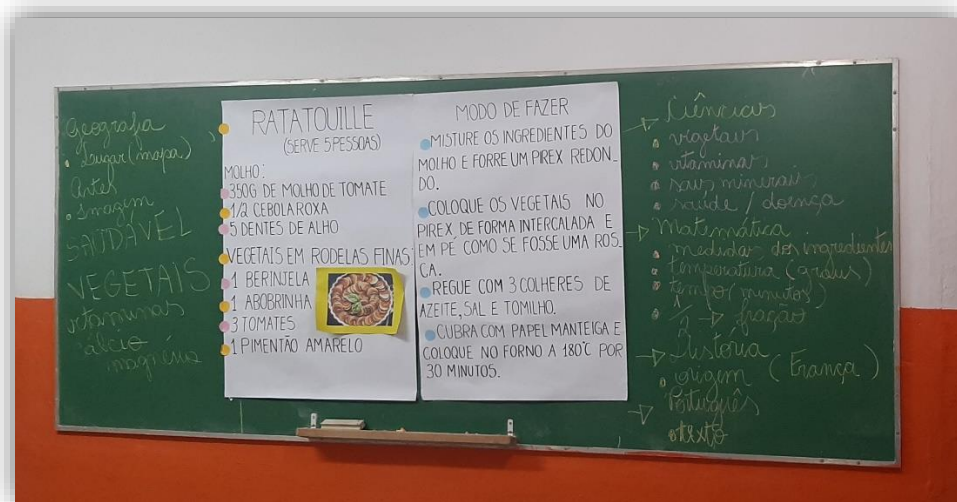 Geografia
• Lugar (mapa)
Artes
• Imagem
SAUDÁVEL
VEGETAIS
vitaminas
cálcio
magnésio
RATATOUILLE
(SERVE 5 PESSOAS)
MOLHO:
350G DE MOLHO DE TOMATE
1/2 CEBOLA ROXA
5 DENTES DE ALHO
VEGETAIS EM RODELAS FINAS:
1 BERINJELA
1 ABOBRINHA
3 TOMATES
1 PIMENTÃO AMARELO
MODO DE FAZER
MISTURE OS INGREDIENTES DO
MOLHO E FORRE UM PIREX REDON_
DO.
COLOQUE OS VEGETAIS NO
PIREX DE FORMA INTERCALADA E
EM PÉ COMO SE FOSSE UMA ROS_
CA.
REGUE COM 3 COLHERES DE
AZEITE, SAL E TOMILHO.
CUBRA COM PAPEL MANTEIGA E
COLOQUE NO FORNO A 180°C POR
30 MINUTOS.
→ Ciências
• vegetais
• vitaminas
• sais minerais
• saúde / doença
→ Matemática
• medidas dos ingredientes
• temperatura (graus)
• tempo (minutos)
• 1/2 → fração
→ História
• origem (França)
→ Português
• texto